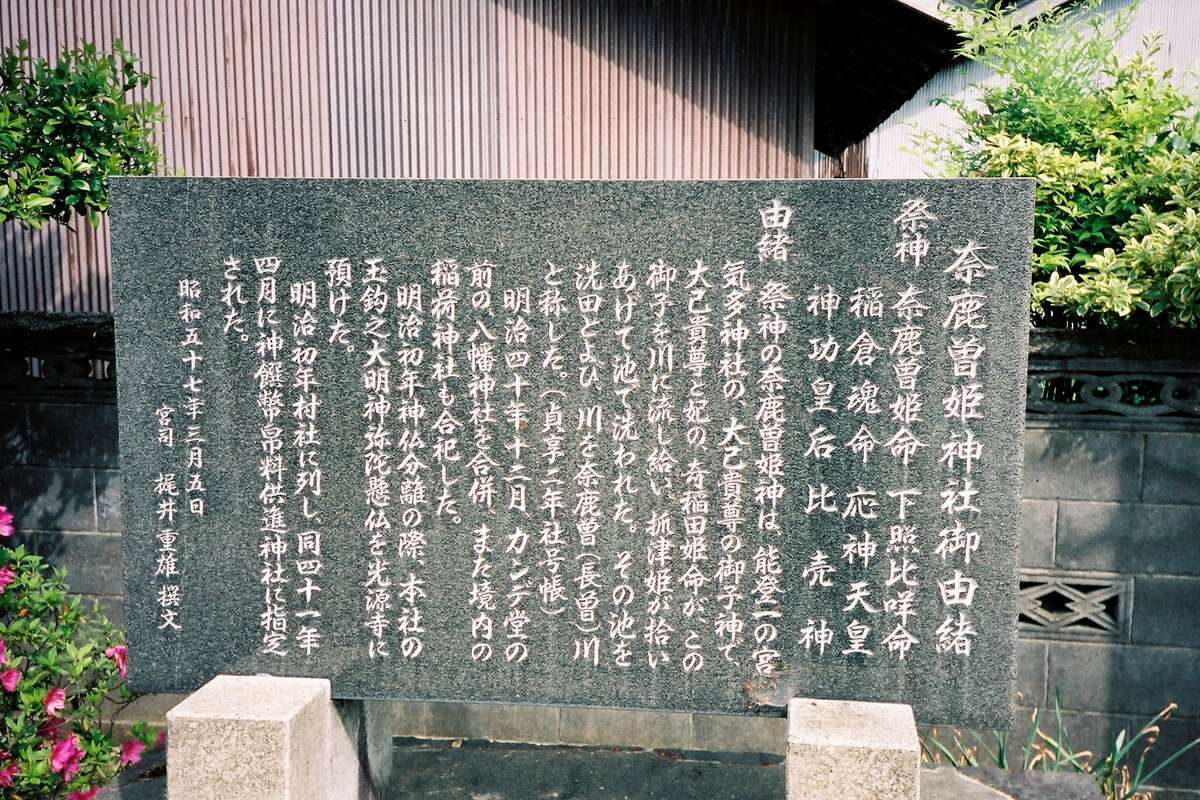 奈鹿曽姫神社御由緒
祭神 奈鹿曽姫命 下照比咩命
稲倉魂命 応神天皇
神功皇后 比売神
由緒 祭神の奈鹿曽姫神は、能登二の宮
気多神社の、大己貴尊の御子神で、
大己貴尊と妃の、奇稲田姫命が、この
御子を川に流し給い、抓津姫が拾い
あげて池で洗われた。その池を
洗田とよひ、川を奈鹿曽(長曽)川
と称した。(貞享二年社号帳)
明治四十年十二月 カンデ堂の
前の、八幡神社を合併、また境内の
稲荷神社も合祀した。
明治初年神仏分離の際、本社の
玉鈎之大明神弥陀懸仏を光源寺に
預けた。
明治初年村社に列し、同四十一年
四月に神饌幣帛料供進神社に指定
された。
昭和五十七年三月五日
宮司 梶井重雄 撰文